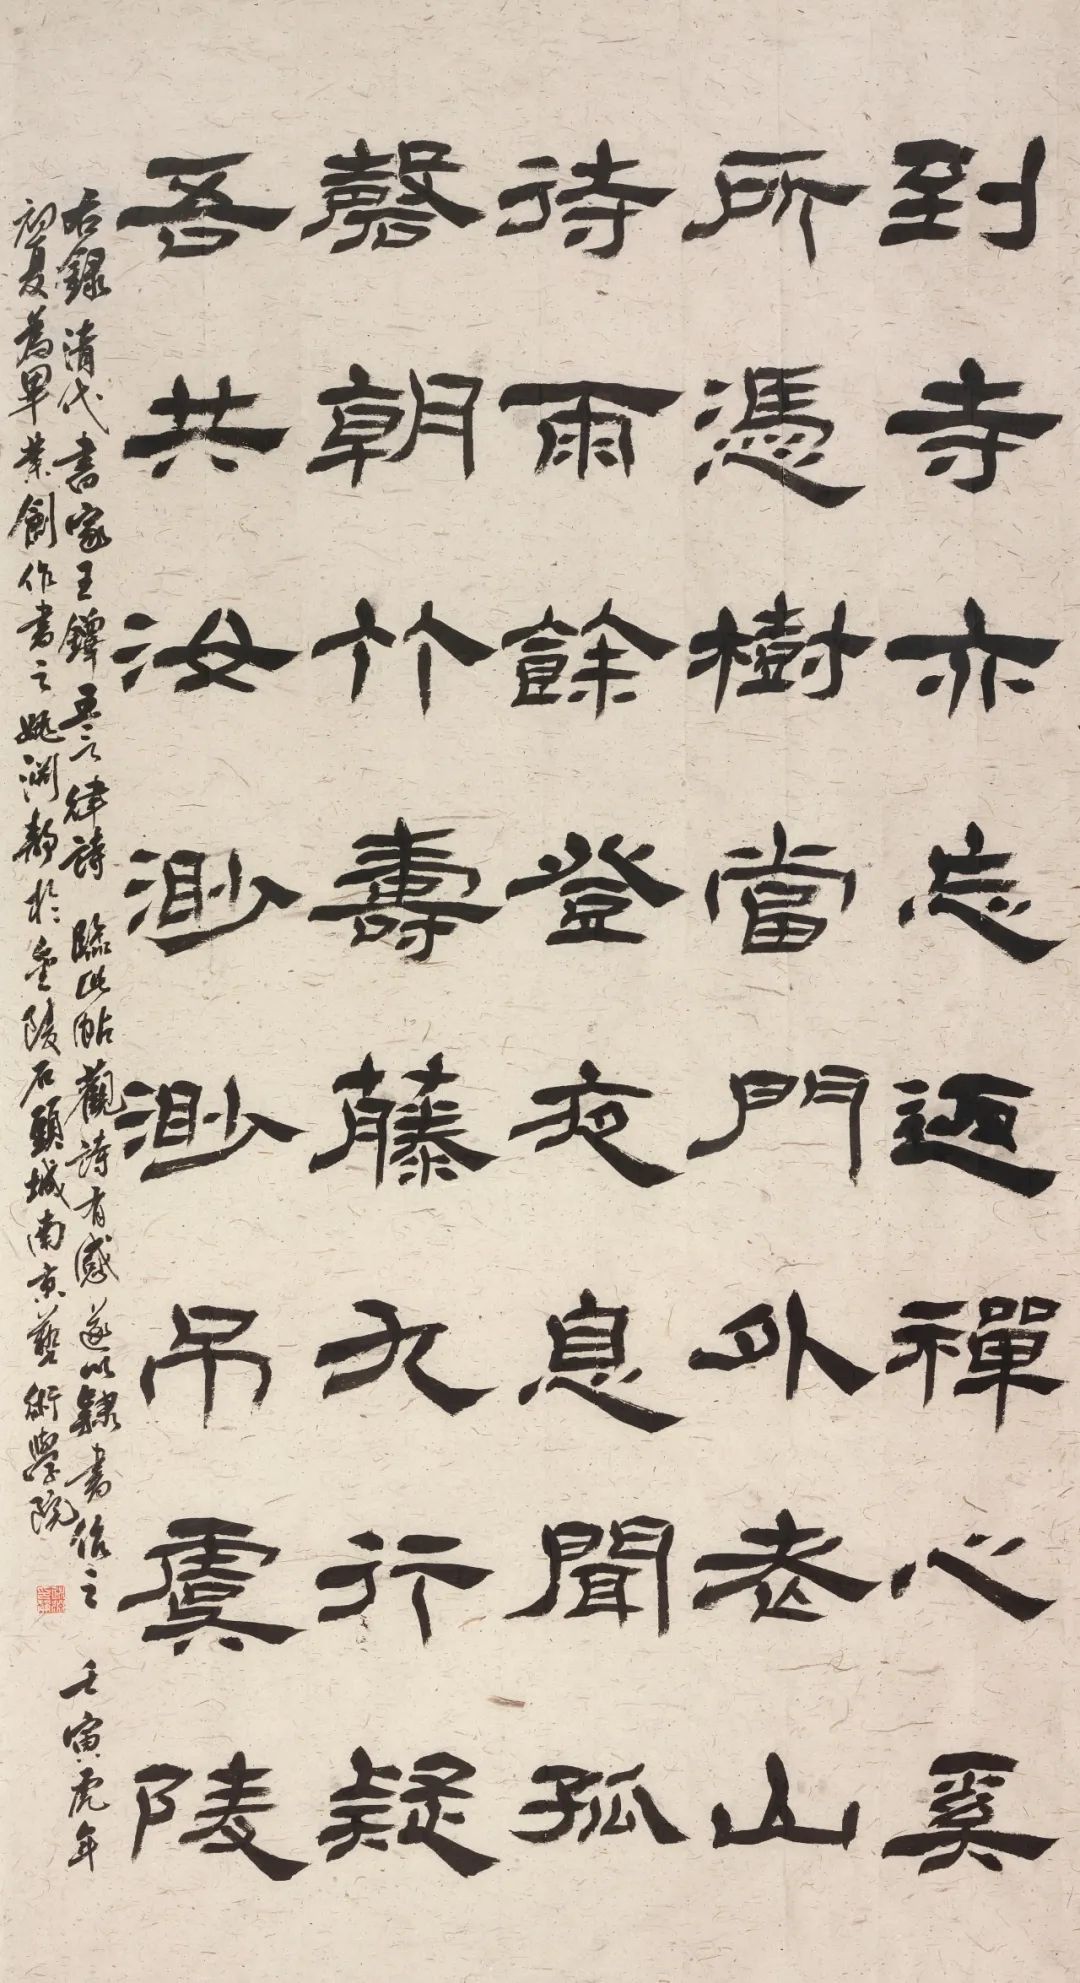 到寺亦忘迈禅心奚
所憑樹當門外老山
待雨餘登夜息聞孤
磬朝竹壽藤九行疑
吾共汝渺渺吊虞陵
右録清代書家王鐸五言律詩 臨此帖觀詩有感遂以隸書作之 壬寅虎年
初夏為畢業創作書之姚澗静於金陵石頭城南京藝術學院